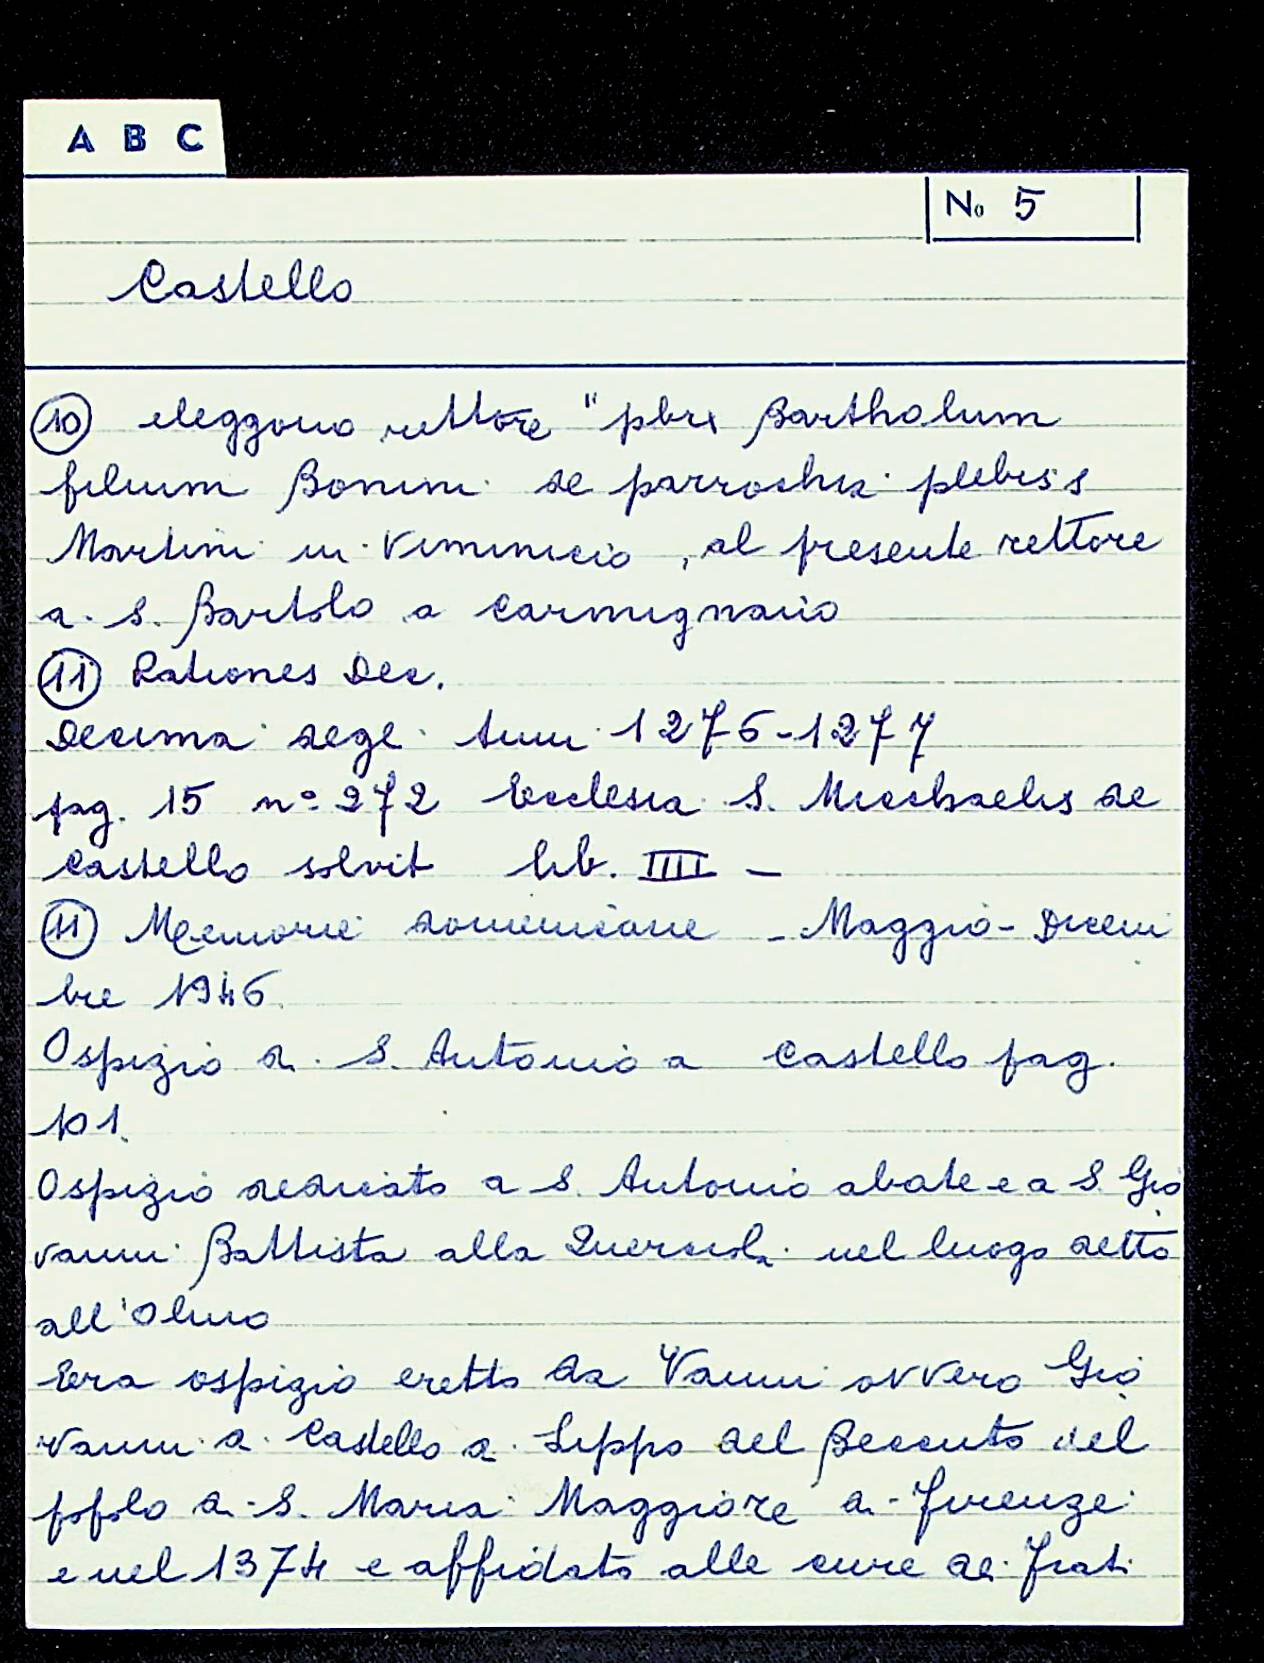 A B C
No 5
Castello
10 eleggono rettore "pbrx Bartholum
filium Bonini de parrochia plebis s
Martini in Viminiccio, al presente rettore
di S. Bartolo a Carmignano
11 Rationes Dec.
Decima degl. Ann. 1276-1277
pag. 15 n° 272 Ecclesia S. Michaelis de
Castello solvit lib. IIII -
11 Memorie domenicane - Maggio - Dicem
bre 1946
Ospizio di S. Antonio a Castello pag.
101.
Ospizio dedicato a S. Antonio abate e a S. Gio
vanni Battista alla Querciola nel luogo detto
all'Olmo
Era ospizio eretto da Vanni ovvero Gio
vanni di Castello di Lippo del Beccuto del
popolo di S. Maria Maggiore di Firenze
e nel 1374 e affidato alle cure dei frati